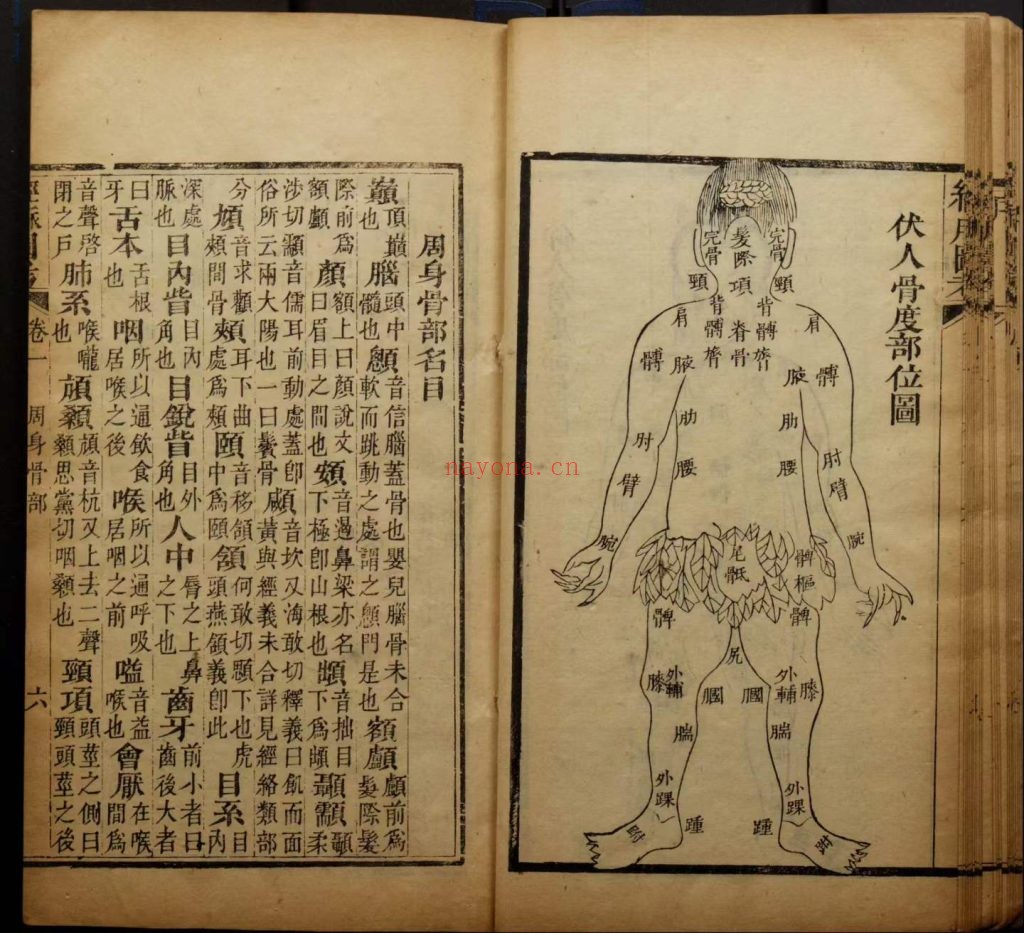 伏人骨度部位圖
髮際
項
完骨
完骨
頸
頸
脊骨
背髆膂
背髆膂
肩
肩
髆
髆
腋
腋
肋
肋
肘
肘
臂
臂
腰
腰
腕
腕
尾骶骨
髀樞
髀
髀
尻
外輔
外輔
膝
膝
膕
膕
腨
腨
外踝
外踝
踵
踵
跗
跗
周身骨部名目
巔頂巔也腦頭中髓也顖音信腦蓋骨也嬰兒腦骨未合軟而跳動之處謂之顖門是也額顱顱前爲髮際髮
際前爲額顱顏額上曰顏說文曰眉目之間也頞音遏鼻梁亦名下極卽山根也䪼音拙目下爲䪼顳顬顳柔
涉切顬音儒耳前動處蓋卽俗所云兩大陽也一曰鬢骨顑音坎又海敢切釋義曰飢而面黃與經義未合詳見經絡類部
分頄音求顴頰間骨頰耳下曲處爲頰頤音移頷中爲頤頷何敢切顋下也虎頭燕頷義卽此目系目內
深處脈也目內眥目內角也目銳眥目外角也人中脣之上鼻之下也齒牙前小者曰齒後大者
曰牙舌本舌根也咽所以通飲食居喉之後喉所以通呼吸居咽之前嗌音益喉也會厭在喉間爲
音聲啓閉之戶肺系喉嚨也頏顙頏音杭又上去二聲顙思黨切咽顙也頸項頭莖之側曰頸頭莖之後
卷一 周身骨部 六
nayona.cn